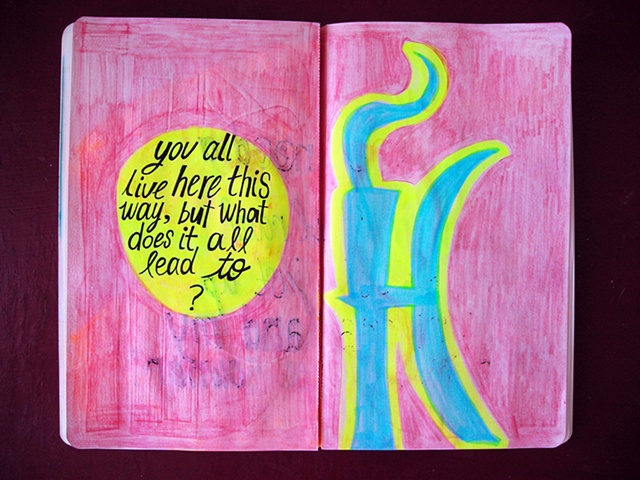 you all
live here this
way, but what
does it all
lead to
?